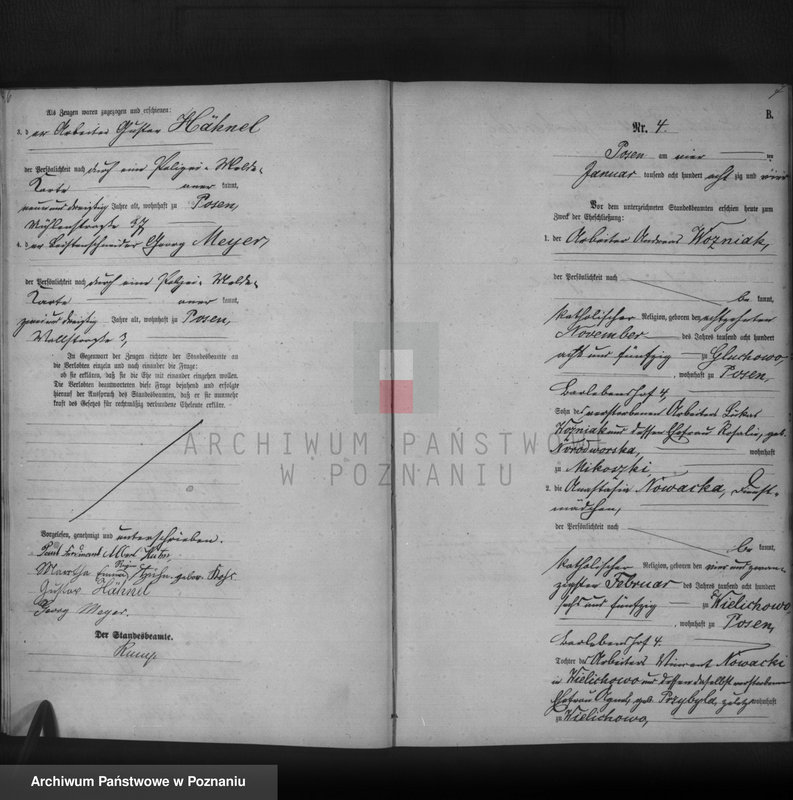 6
Als Zeugen waren zugezogen und erschienen:
3. der Arbeiter Gustav Hähnel
der Persönlichkeit nach durch eine Polizei-Melde-
Karte anerkannt,
neununddreißig Jahre alt, wohnhaft zu Posen,
Mühlenstraße 27
4. der Leistenschneider Georg Meyer,
der Persönlichkeit nach durch eine Polizei-Melde-
Karte anerkannt,
zweiunddreißig Jahre alt, wohnhaft zu Posen,
Wallstraße 3,
In Gegenwart der Zeugen richtete der Standesbeamte an
die Verlobten einzeln und nach einander die Frage:
ob sie erklären, daß sie die Ehe mit einander eingehen wollen.
Die Verlobten beantworteten diese Frage bejahend und erfolgte
hierauf der Ausspruch des Standesbeamten, daß er sie nunmehr
kraft des Gesetzes für rechtmäßig verbundene Eheleute erkläre.
Vorgelesen, genehmigt und unterschrieben.
Ferdinand Albert
Martha Emma geboren
Gustav Hähnel
Georg Meyer.
Der Standesbeamte.
B.
Nr. 4.
Posen am vier ten
Januar tausend acht hundert achtzig und vier
Vor dem unterzeichneten Standesbeamten erschien heute zum
Zweck der Eheschließung:
1. der Arbeiter Andreas Wozniak,
der Persönlichkeit nach
bekannt,
katholischer Religion, geboren den achtzehnten
November des Jahres tausend acht hundert
acht und fünfzig zu Gluchowo,
, wohnhaft zu Posen,
Barlebenshof 4,
Sohn des verstorbenen Arbeiters Lukas
Wozniak und dessen Ehefrau Rosalie, geb.
Nowodworska, wohnhaft
zu Mikoszki,
2. die Anastasia Nowacka, Dienst-
mädchen,
der Persönlichkeit nach
bekannt,
katholischer Religion, geboren den vier und zwan-
zigsten Februar des Jahres tausend acht hundert
sechs und fünfzig zu Wielichowo,
, wohnhaft zu Posen,
Barlebenshof 4.
Tochter des Arbeiters Vincent Nowacki
in Wielichowo und dessen daselbst verstorbenen
Ehefrau Agnes, geb. Przybyla, zuletzt wohnhaft
zu Wielichowo,
ARCHIWUM PAŃSTWOWE
W POZNANIU
Archiwum Państwowe w Poznaniu